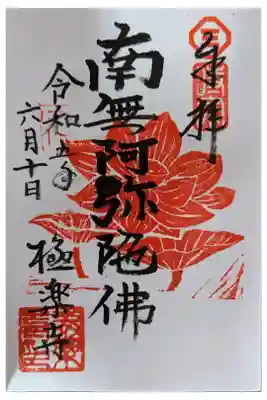 奉拝
南無阿弥陀佛
令和五年
六月十日
極楽寺